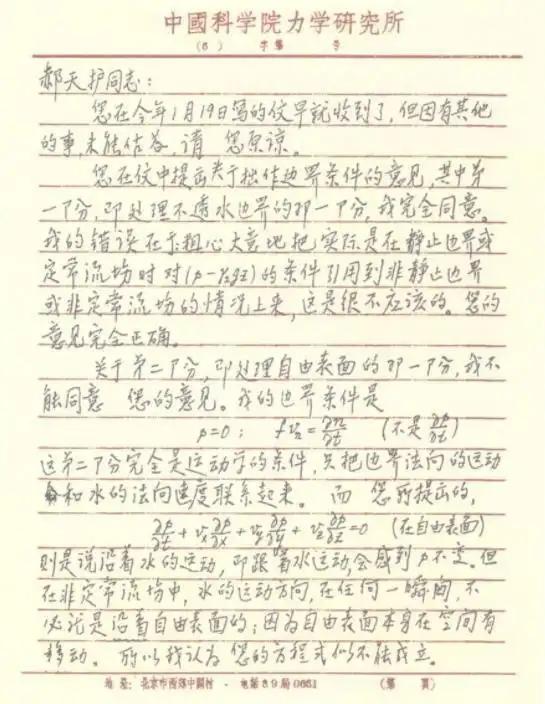 中國科学院力学研究所
(6) 字第 号
郝天护同志：
您在今年1月19日写的信早就收到了，但因有其他
的事，未能作答，请 您原谅。
您在信中提出关于拙作边界条件的意见，其中第
一部分，即处理不透水边界的那一部分，我完全同意。
我的错误在于粗心大意地把实际是在静止边界或
定常流场时对(p-γ₂gz)的条件引用到非静止边界
或非定常流场的情况上来，这是很不应该的。您的
意见完全正确。
关于第二部分，即处理自由表面的那一部分，我不
能同意 您的意见。我的边界条件是
p=0； fv₂=∂n/∂t （不是∂p/∂t）
这第二部分完全是运动学的条件，只把边界法向的运动
和水的法向速度联系起来。而 您所提出的，
∂p/∂t+vₓ∂p/∂x+v_y∂p/∂y+v_z∂p/∂z=0 （在自由表面）
则是说沿着水的运动，即跟着水运动会感到p不变。但
在非定常流场中，水的运动方向，在任何一瞬间，不
必就是沿着自由表面的；因为自由表面本身在空间有
移动。所以我认为 您的方程式似不能成立。
地址：北京市西郊中關村 · 电话89局0661 （第 頁）